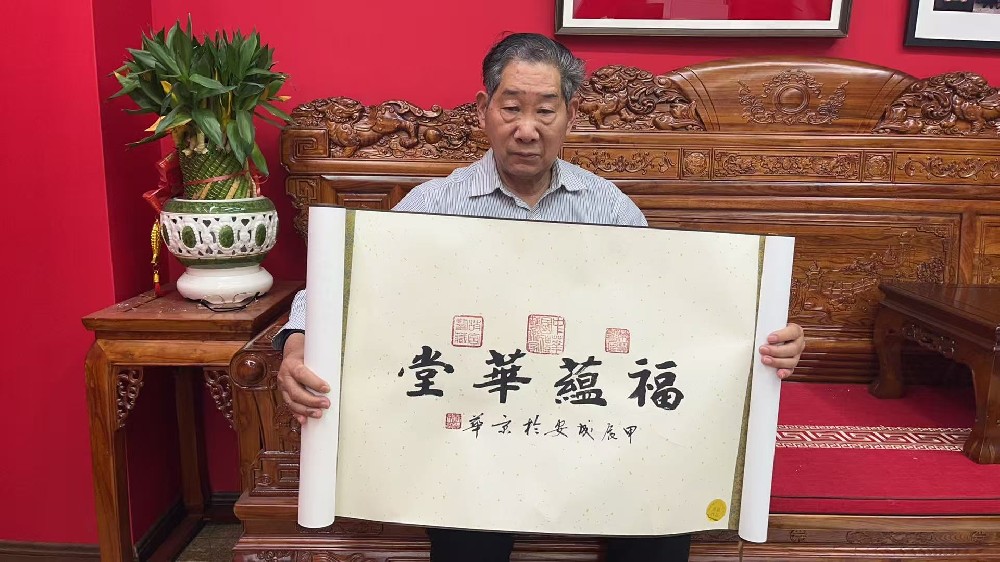 福蘊華堂
甲辰成安於京華